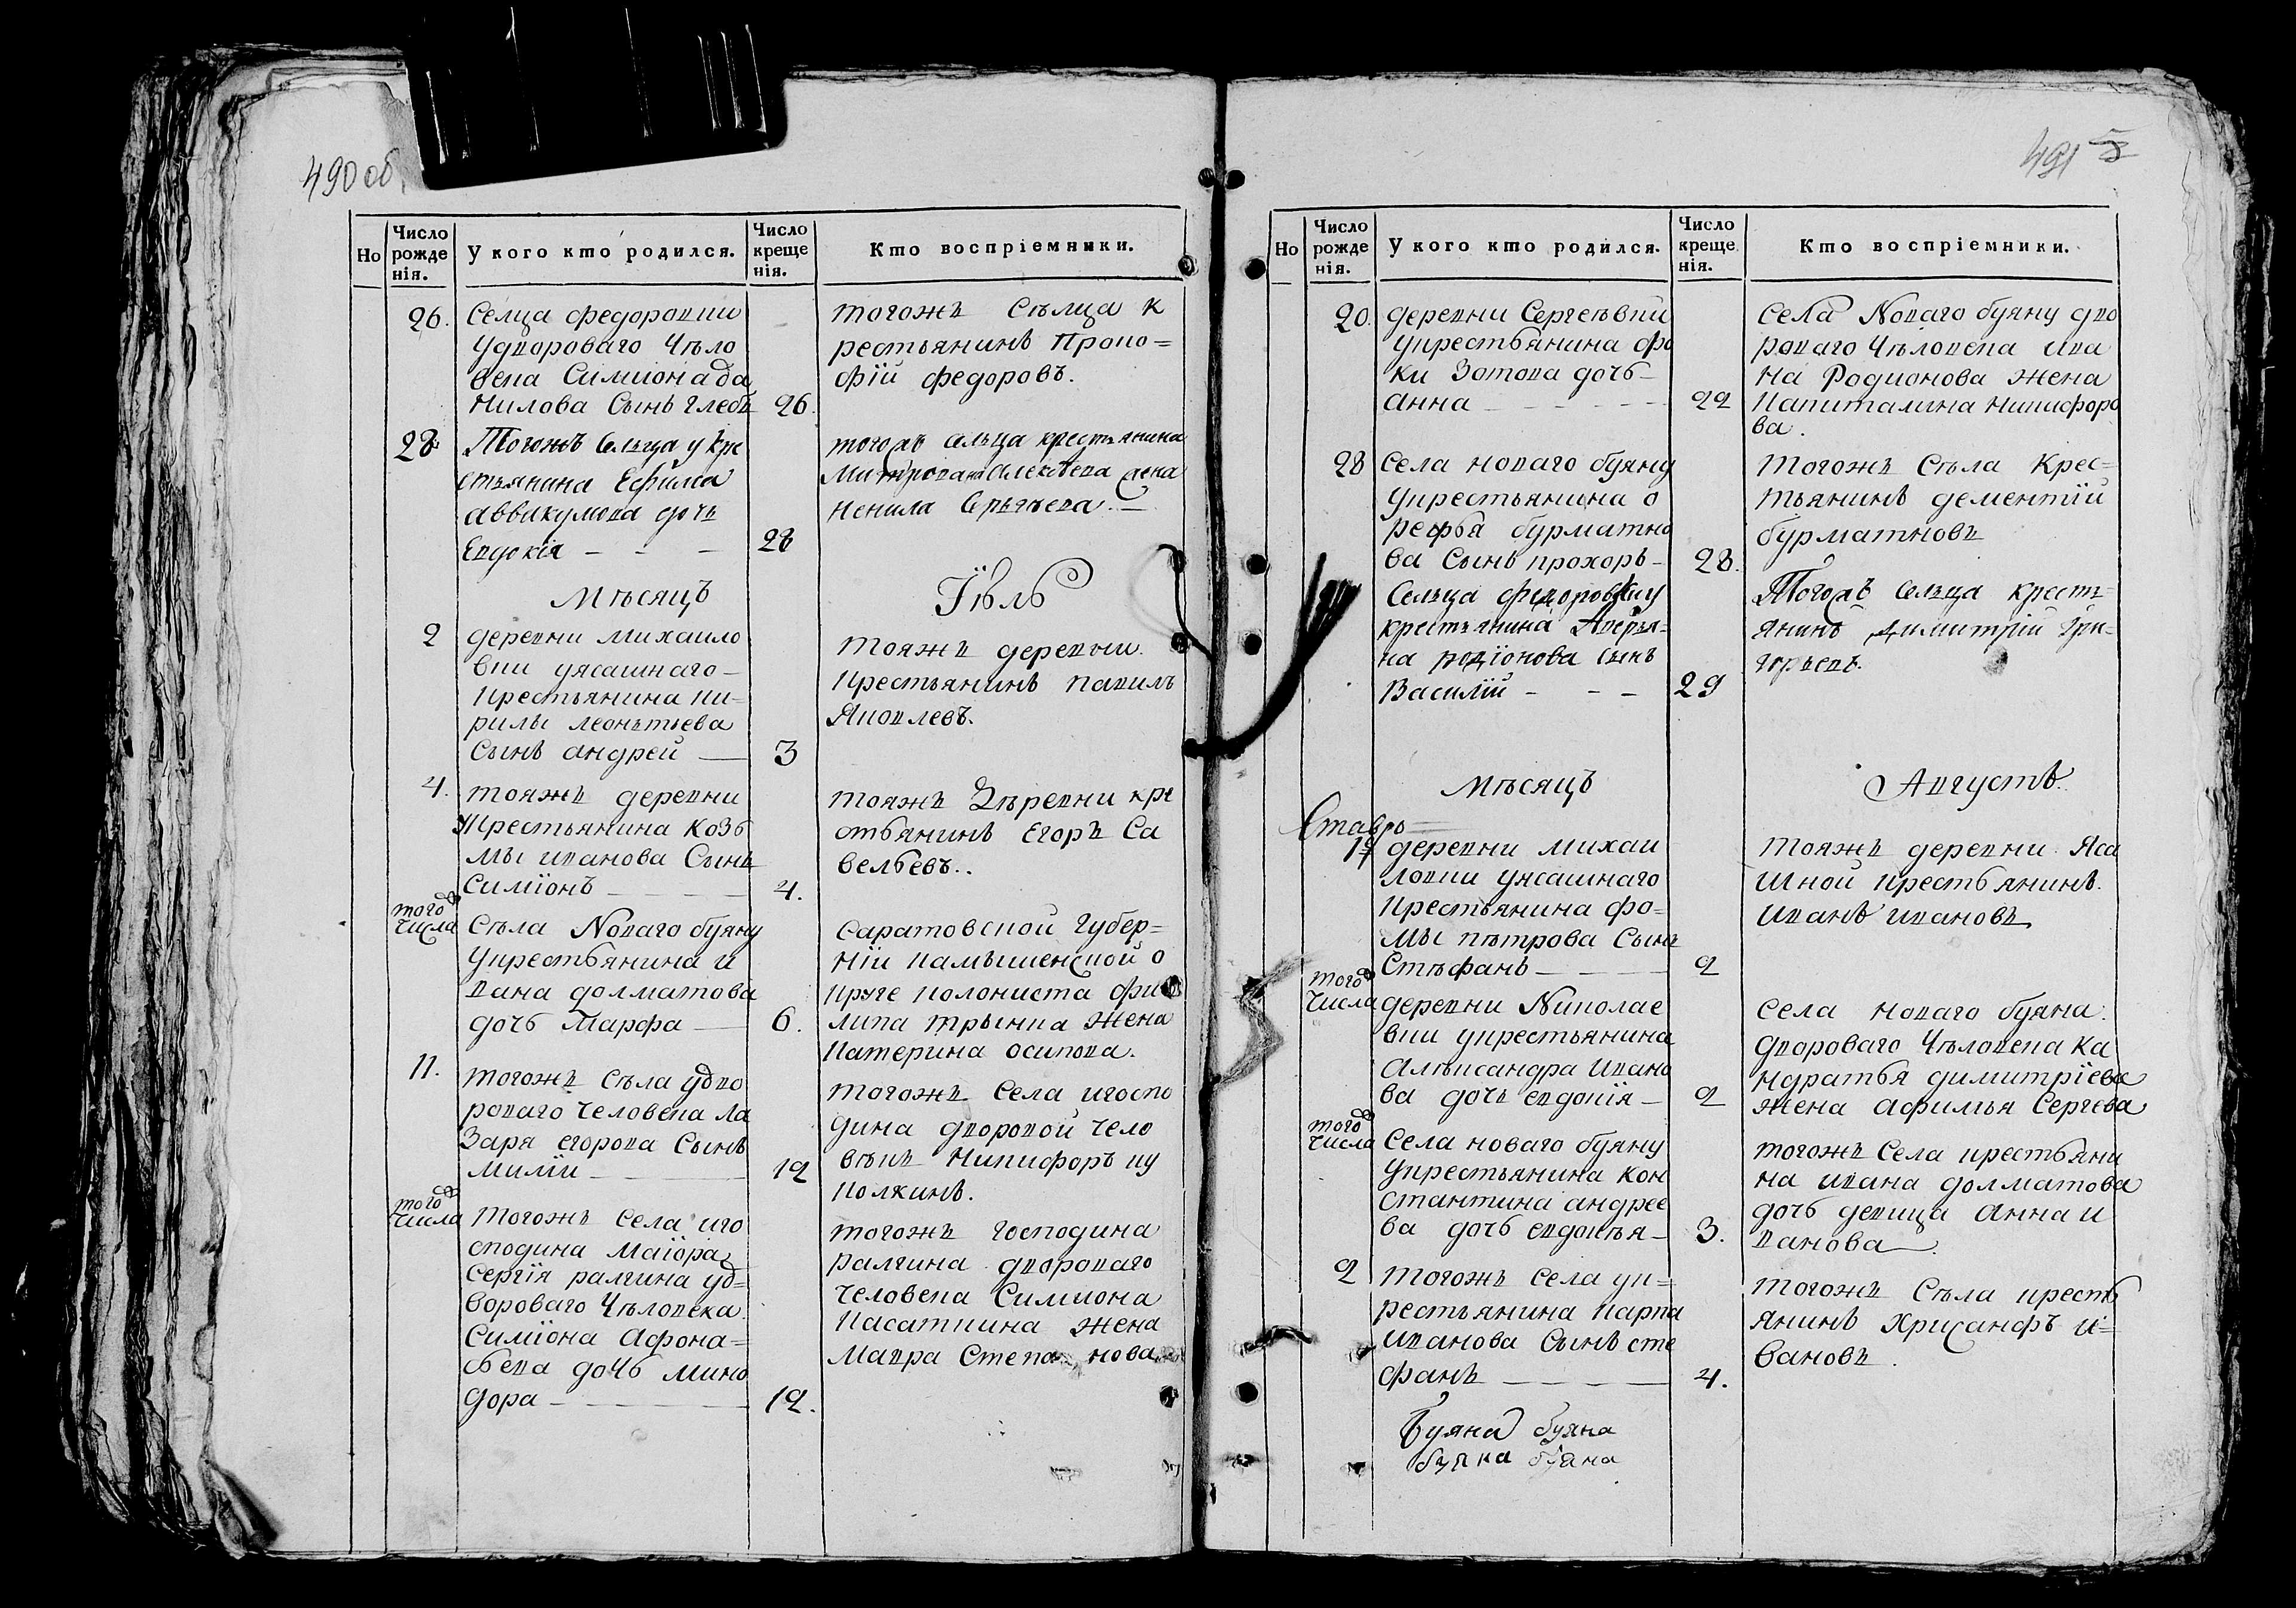 490 об.
Но
Число рожде нія.
У кого кто родился.
Число креще нія.
Кто воспріемники.
26.
Селца Федоровки
Удвороваго Чѣло
века Симиона да
нилова Сынъ глебъ
26.
тогожъ Сѣлца к
рестьянинъ Проко=
фїй федоровъ.
28
Тогожъ Сельца у кре
стьянина Ефима
аввакумова дочь
Евдокїя - - -
28
тогожъ сельца крестьянина
Митрофана Алексѣева жена
Ненила Сергѣева. -
Мѣсяцъ
Іюль
2
деревни михаило
вки уясашнаго -
крестьянина ки-
рилы леонътьева
Сынъ андрей -
3
тояжъ деревни.
крестьянинъ павилъ
Яковлевъ.
4.
тояжъ деревни
укрестьянина козь
мы иванова Сынъ
Симїонъ - - -
4.
тояжъ Дѣревни кре
стьянинъ Егоръ Са
вельевъ..
того
числа
Сѣла Новаго буяну
Укрестьянина и
вана долматова
дочь Марфа -
6.
саратовской губер=
нїи камышенской о
круге колониста фи
липа трынка жена
катерина осипова.
11.
тогожъ Сѣла удво
роваго человека ла
заря егорова Сынъ
милїи - - -
12
тогожъ села игоспо
дина дворовой чело
вѣкъ Никифоръ ку
колкинъ.
того
числа
тогожъ села уго
сподина маїора
сергїя ралгина уд=
вороваго Чѣловека
Симїона Афона=
сьева дочь мино
дора - - -
12.
тогожъ господина
ралгина двороваго
человека Симиона
касаткина жена
мавра Степанова
491
5
Но
Число рожде нія.
У кого кто родился.
Число креще нія.
Кто воспріемники.
20.
деревни Сергеѣвки
укрестьянина фо
ки Зотова дочь -
анна - - - -
22
села Новаго буяну дво
роваго Чѣловека ива
на Родионова жена
капиталина никифоро
ва.
28
села новаго буяну
укрестьянина о
рефья бурматно
ва Сынъ прохоръ -
28.
тогожъ Сѣла Крес=
тьянинъ дементїй
бурматновъ
Сельца федоровки у
крестьянина Аверья=
на родїонова сынъ
Василїй - - -
29
Тогожъ сельца кресть=
янинъ Димитрїй гри-
горьевъ.
Мѣсяцъ
Августъ.
Ставръ=
1го
деревни михаи
ловки уясашнаго
крестьянина фо=
мы пѣтрова Сынъ
Стѣфанъ - - -
2
тояжъ деревни Яса
шной крестьянинъ.
иванъ ивановъ
того
числа
деревни Николае
вки укрестьянина
Алѣксандра ивано
ва дочь евдокїя -
2
села новаго буяна.
двороваго Чѣловека ка
ндратья димитрїева
жена афимья Сергева
того
числа
Села новаго буяну
укрестьянина кон
стантина андрее
ва дочь евдокѣя -
3.
тогожъ села крестьяни
на ивана долматова
дочь девица анна и
ванова.
2
тогожъ села ук=
рестьянина карпа
иванова Сынъ сте
фанъ - - -
4.
тогожъ Сѣла кресть
янинъ Хрисанфъ и=
вановъ.
Буяна буяна
буяна буяна